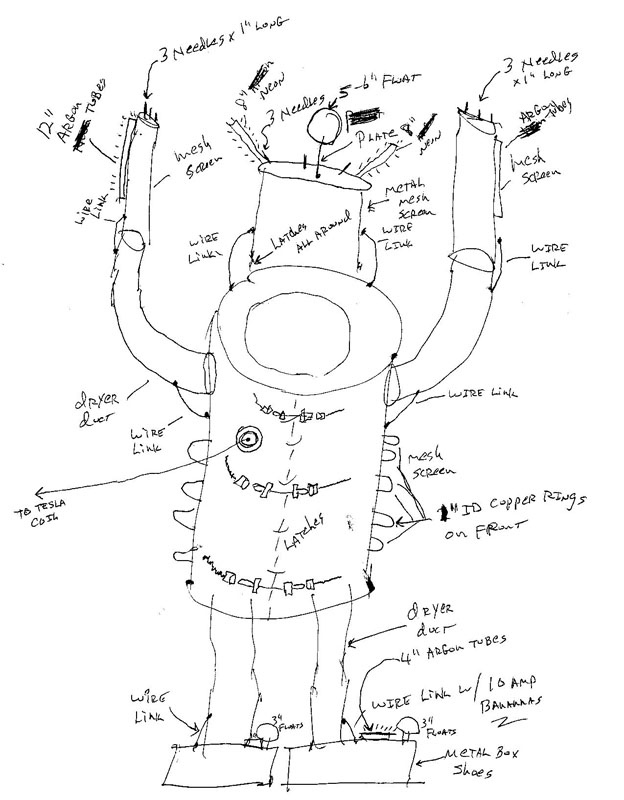 3 Needles x 1" LONG
12"
ARGON TUBES
mesh
SCREEN
WIRE
LINK
8"
NEON
3 Needles
5-6" FLOAT
PLATE
8"
NEON
METAL
mesh
SCREEN
WIRE
LINK
LATCHES
ALL AROUND
WIRE
LINK
3 Needles
x 1" LONG
ARGON
TUBES
mesh
SCREEN
WIRE
LINK
dryer
duct
WIRE
LINK
WIRE LINK
mesh
SCREEN
TO TESLA
COIL
1" ID COPPER RINGS
ON FRONT
LATCHES
dryer
duct
4" ARGON TUBES
WIRE LINK W/ 10 AMP
BANANAS
WIRE
LINK
3"
FLOATS
3"
FLOATS
METAL BOX
SHOES